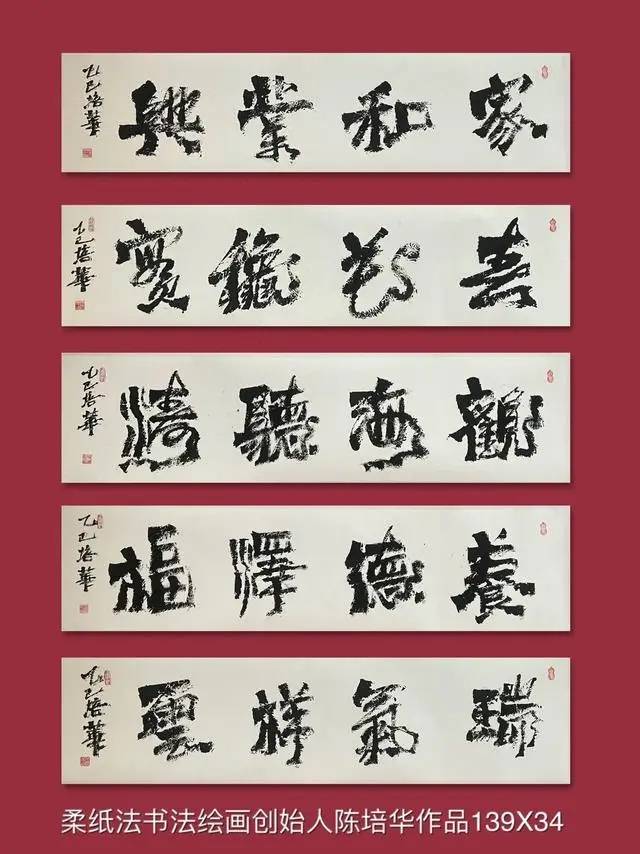 家和業興
乙巳培華
寶
乙巳培華
觀海聽濤
乙巳培華
養德澤福
乙巳培華
瑞氣祥雲
乙巳培華
柔纸法书法绘画创始人陈培华作品139X34